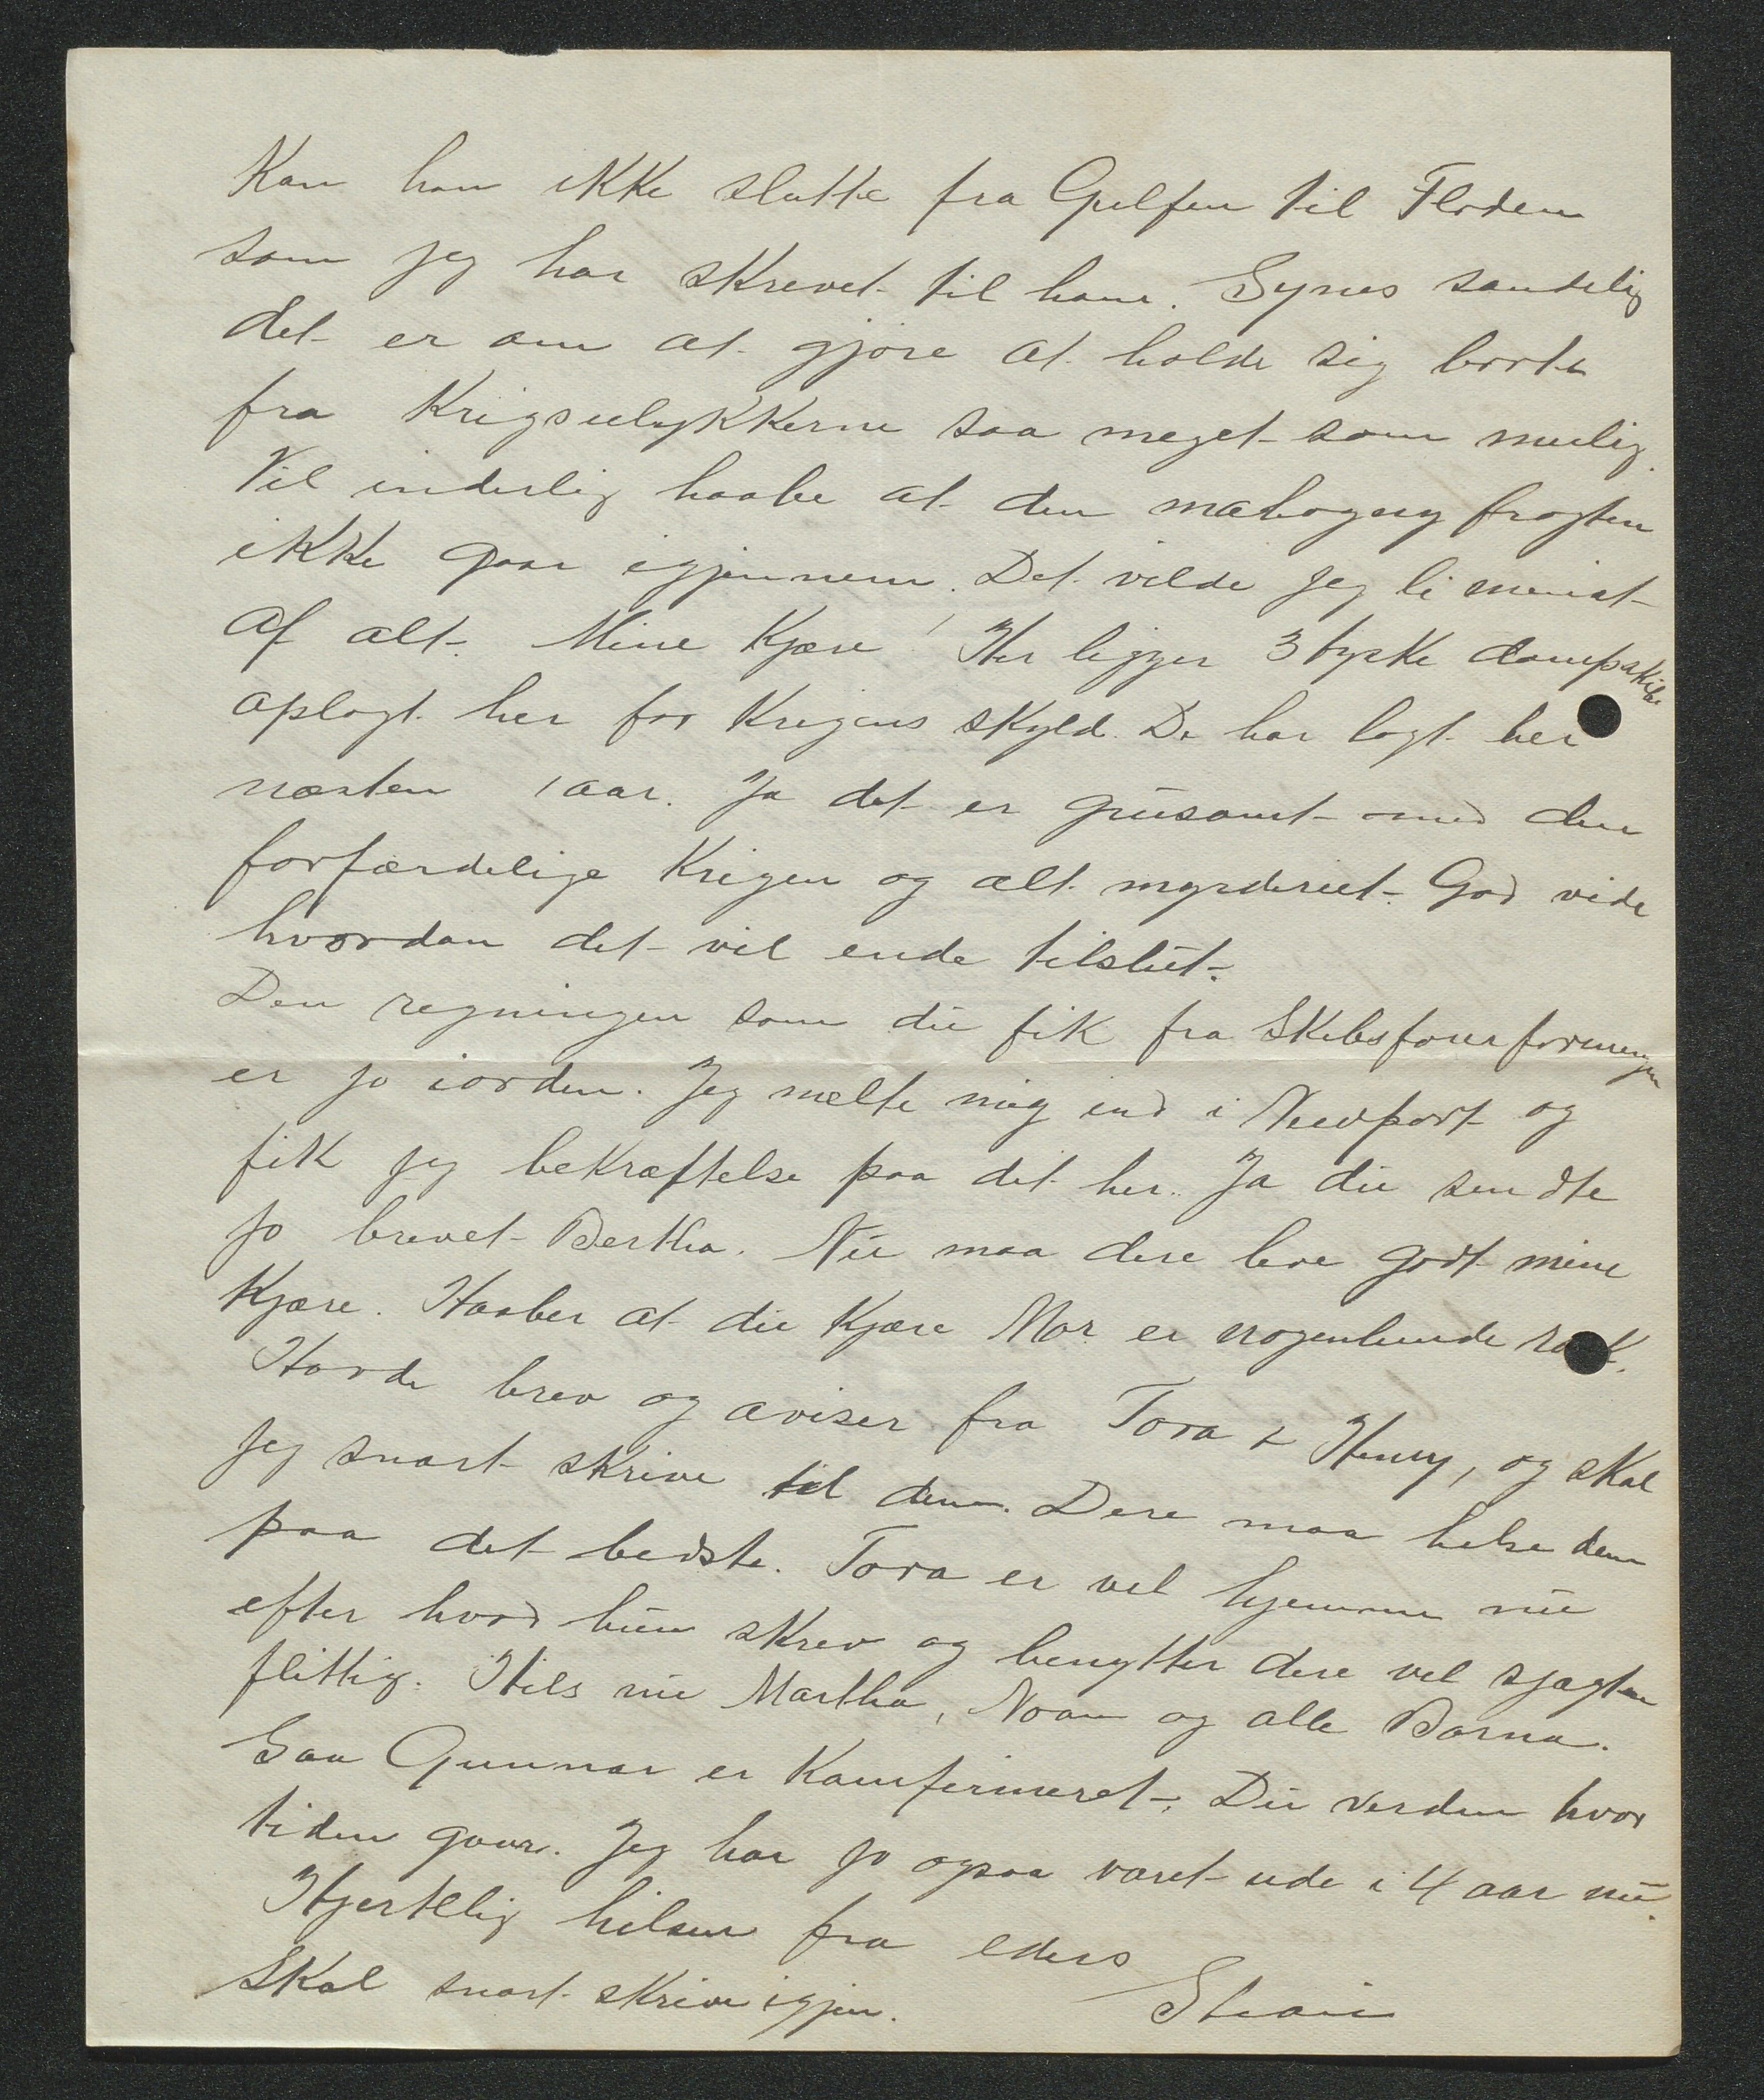 Kan han ikke slutte fra Gulfen til Floden
som jeg har skrevet til ham. Synes sandelig
det er om at gjøre at holde sig borte
fra Krigsulykkerne saa meget som mulig.
Vil inderlig haabe at den mahogny fragten
ikke gaar igjennem. Det vilde jeg li minst
af alt. Mine Kjære! Her ligger 3 tyske dampskibe
oplagt her for Krigens skyld. De har lagt her
næsten 1 aar. Ja det er grusomt med den
forfærdelige Krigen og alt myrderiet. Gud vide
hvordan det vil ende tilslut.
Den regningen som du fik fra Skibsførerforeningen
er jo iorden. Jeg melte mig ind i Newport og
fik jeg bekræftelse paa dit her. Ja du sendte
jo brevet Bertha. Nu maa dere leve godt mine
Kjære. Haaber at du Kjære Mor er nogenlunde rask.
Havde brev og aviser fra Tora & Henry, og skal
jeg snart skrive til dem. Dere maa helse dem
paa det bedste. Tora er vel hjemme nu
efter hvad hun skrev og benytter dere vel sjægten
flittig. Hils nu Martha, Noam og alle Barna.
Saa Gunnar er Kamfirmeret. Du verden hvor
tiden gaar. Jeg har jo ogsaa været ude i 4 aar nu.
Hjertelig hilsen fra eders
Skal snart skrive igjen.